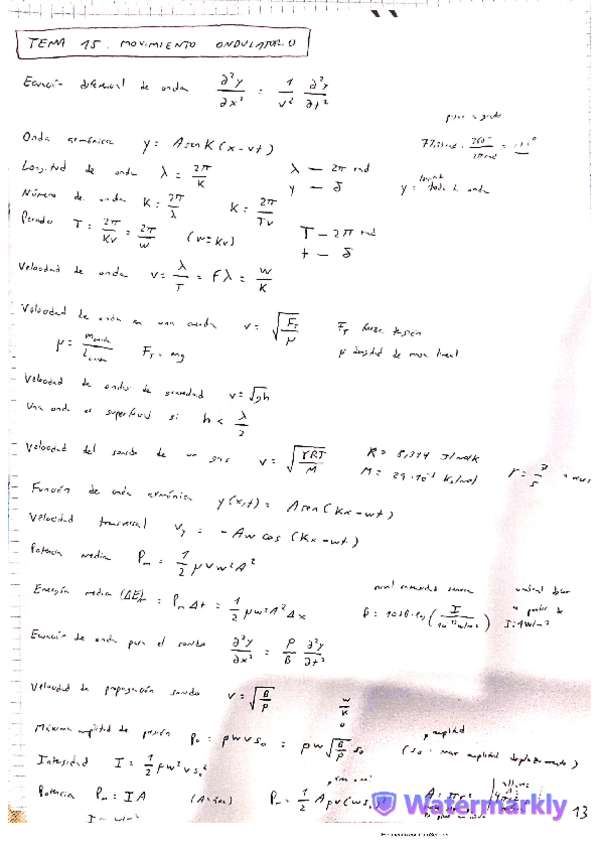 TEMA 15. MOVIMIENTO ONDULATORIO
Ecuación diferencial de onda ∂²y/∂x² = 1/v² ∂²y/∂t²
pasar a grados
360° / 2π rad
Onda armónica y = A sen K (x - vt)
Longitud de onda λ = 2π/K λ — 2π rad
y — δ y = toda la onda
Número de onda K = 2π/λ K = 2π/Tv
Periodo T = 2π/Kv = 2π/w (w = Kv) T — 2π rad
t — δ
Velocidad de onda v = λ/T = Fλ = w/K
Velocidad de onda en una cuerda v = √(F_T/μ) F_T fuerza tensión
μ = m cuerda/L cuerda F_T = mg μ densidad de masa lineal
Velocidad de ondas de gravedad v = √gh
Una onda es superficial si h < λ/2
Velocidad del sonido de un gas v = √(γRT/M) R = 8,314 J/molK
M = 29·10⁻³ Kg/mol γ = 7/5
Función de onda armónica y(x,t) = A sen (Kx - wt)
Velocidad transversal v_y = -Aw cos (Kx - wt)
Potencia media P_m = 1/2 μvw²A²
Energía media (ΔE)m = P_m Δt = 1/2 μw²A²Δx
nivel intensidad sonora
β = 10dB·lg (I / 10⁻¹² W/m²)
umbral dolor
a partir de
I = 1W/m²
Ecuación de onda para el sonido ∂²y/∂x² = ρ/B ∂²y/∂t²
Velocidad de propagación sonido v = √(B/ρ) w/K
Máxima amplitud de presión p₀ = ρwvs₀ = ρw√(B/ρ) s₀ (s₀ = max amplitud desplazamiento)
amplitud
Intensidad I = 1/2 ρw²vs₀²
Potencia P_m = IA (A = área) P_m = 1/2 Aρv(ws₀)²
I = W/m²
Watermarkly
13